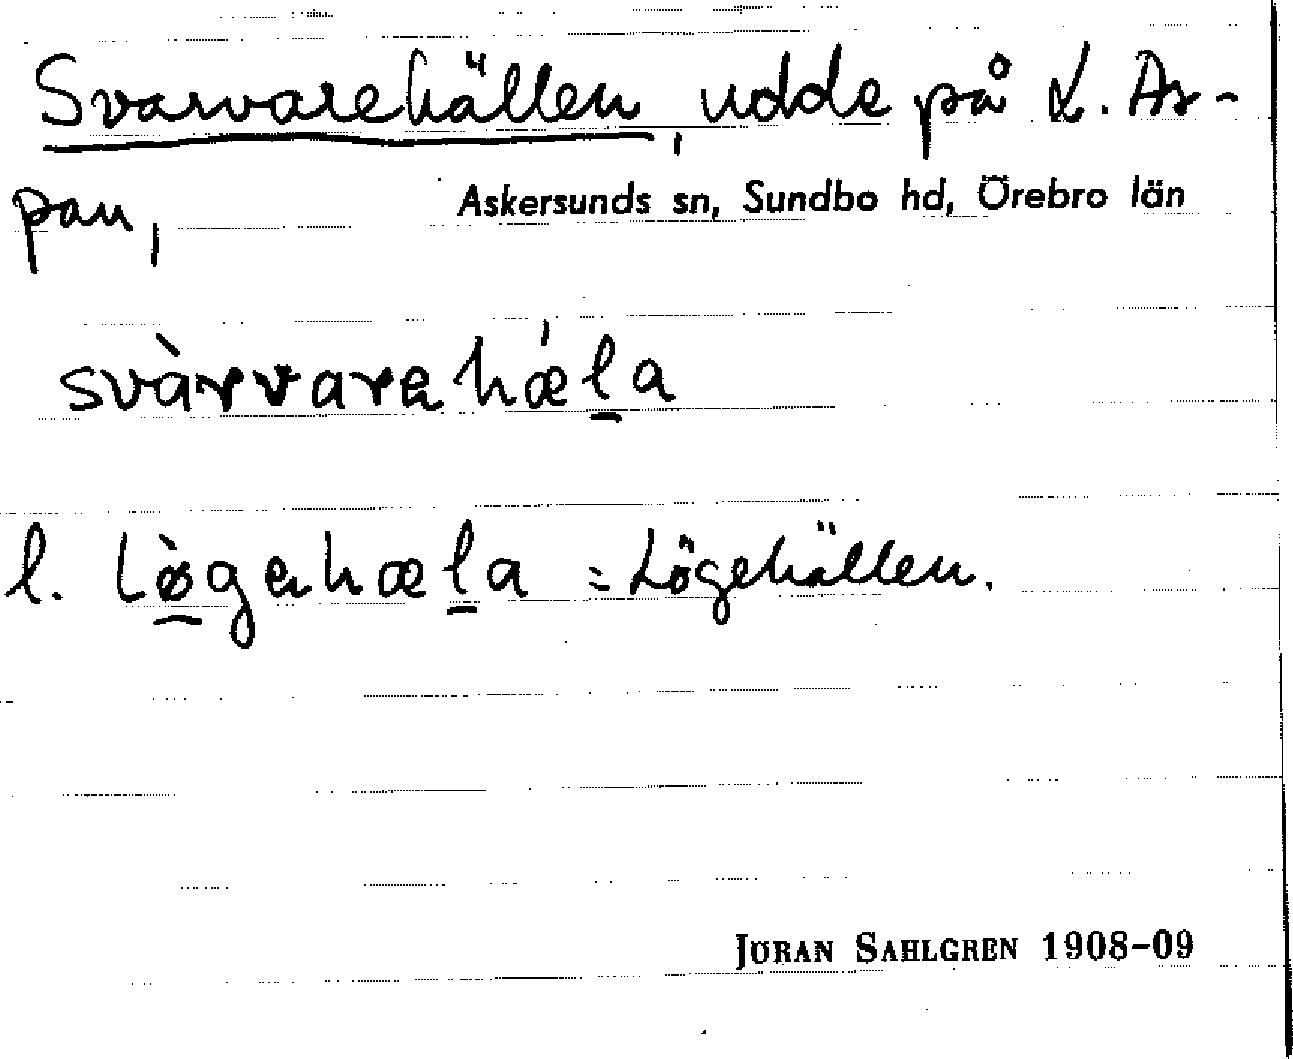 Svarvarehällen, udde på L. As-
pan,
Askersunds sn, Sundbo hd, Örebro län
svàrvarehǽl̲a
l. lø̲̀gehæl̲a = Lögehällen.
JÖRAN SAHLGREN 1908–09